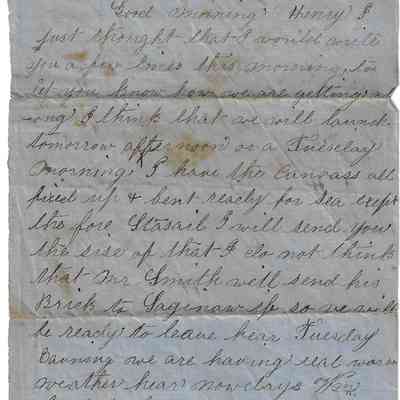 Good Morning Henry I
just thought that I would write
you a few lines this morning to
let you know how we are getting al
ong I think that we will launch
tomorrow afternoon or a Tuesday
morning I have the Canvass all
fixed up & bent ready for Sea exept
the fore Stasail I will send you
the sise of that I do not think
that Mr Smith will send his
Brick to Saginaw so we will
be ready to leave hear Tuesday
Evening we are having real warm
weather hear nowdays Wm